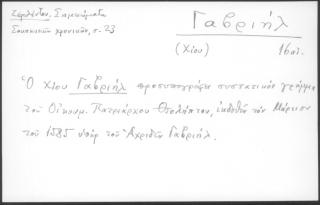 Ζερλέντου, Σημειώματα
Σουσανικῶν χρονικῶν, σ. 23
Γαβριήλ
(Χίου) 16 αἰ.
Ὁ Χίου Γαβριήλ προσυπογράφει συστατικὸν γράμμα
τοῦ Οἰκουμ. Πατριάρχου Θεολήπτου, ἐκδοθὲν τὸν Μάρτιον
τοῦ 1585 ὑπὲρ τοῦ Ἀχριδῶν Γαβριήλ.